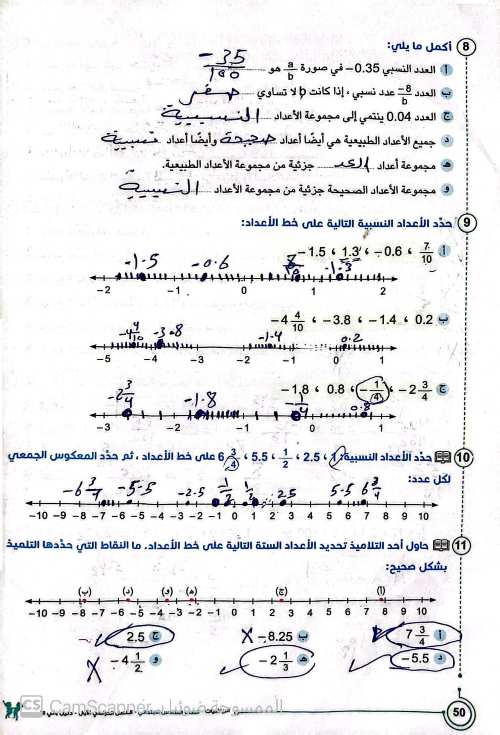 8 أكمل ما يلي:
أ العدد النسبي 0.35− في صورة a/b هو −35/100
ب العدد −8/b عدد نسبي ، إذا كانت b لا تساوي صفر
ج العدد 0.04 ينتمي إلى مجموعة الأعداد النسبية
د جميع الأعداد الطبيعية هي أيضًا أعداد صحيحة وأيضًا أعداد نسبية
هـ مجموعة أعداد العد جزئية من مجموعة الأعداد الطبيعية.
و مجموعة الأعداد الصحيحة جزئية من مجموعة الأعداد النسبية
9 حدّد الأعداد النسبية التالية على خط الأعداد:
أ 7/10 ، −0.6 ، 1.3 ، −1.5
−1.5 −0.6 7/10 −1.3
−2 −1 0 1 2
ب 0.2 ، −1.4 ، −3.8 ، −4 4/10
−4 4/10 −3.8 −1.4 0.2
−5 −4 −3 −2 −1 0 1
ج −2 3/4 ، −1/4 ، 0.8 ، −1.8
−2 3/4 −1.8 −1/4 0.8
−3 −2 −1 0 1
10 حدّد الأعداد النسبية: 1 ، 2.5 ، 1/2 ، 5.5 ، 6 3/4 على خط الأعداد ، ثم حدّد المعكوس الجمعي
لكل عدد:
−6 3/4 −5.5 −2.5 −1/2 1/2 2.5 5.5 6 3/4
−10 −9 −8 −7 −6 −5 −4 −3 −2 −1 0 1 2 3 4 5 6 7 8 9 10
11 حاول أحد التلاميذ تحديد الأعداد الستة التالية على خط الأعداد. ما النقاط التي حدّدها التلميذ
بشكل صحيح:
(ب) (د) (و) (هـ) (ج) (أ)
−10 −9 −8 −7 −6 −5 −4 −3 −2 −1 0 1 2 3 4 5 6 7 8 9 10
أ 7 3/4 ب −8.25 ج 2.5
د −5.5 هـ −2 1/3 و −4 1/2
50
CS CamScanner الممسوحة ضوئيا بـ